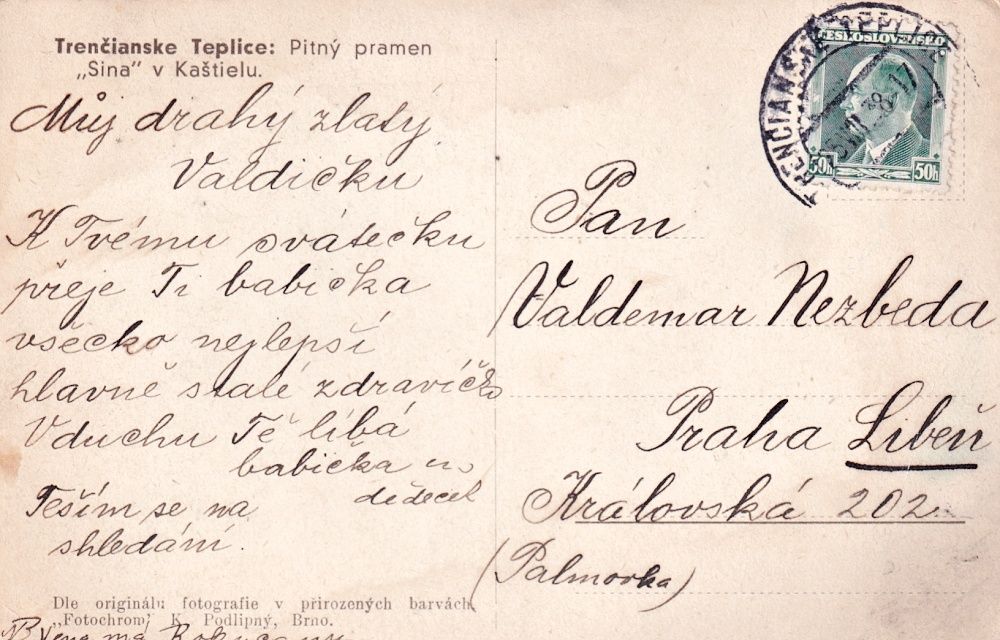 Trenčianske Teplice: Pitný pramen
„Sina“ v Kaštielu.
Můj drahý zlatý
Valdíčku
K Tvému svátečku
přeje Ti babička
všecko nejlepší
hlavně stálé zdravíčko
V duchu Tě líbá
babička
dědeček
Těším se na
shledání.
Dle originálu fotografie v přirozených barvách
„Fotochrom“ K. Podlipný, Brno.
NB
TRENČIANSKE TEPLICE
ČESKOSLOVENSKO
50h 50h
Pan
Valdemar Nezbeda
Praha Libeň
Královská 202
(Palmovka)